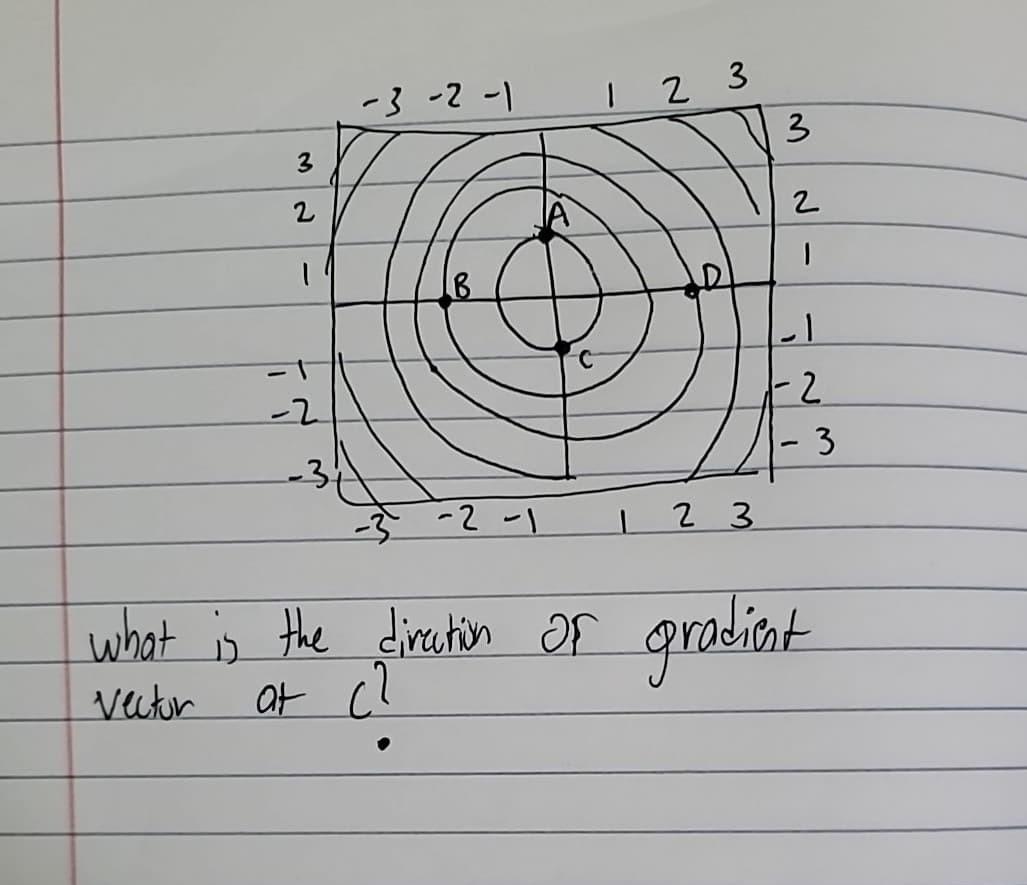 -3 -2 -1 1 2 3
3 3
2 A 2
1 B D 1
C -1
-1 -2
-2 -3
-3
-3 -2 -1 1 2 3
what is the direction of gradient
vector at C?